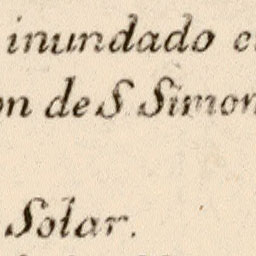 inundado
de S Simon
Solar.